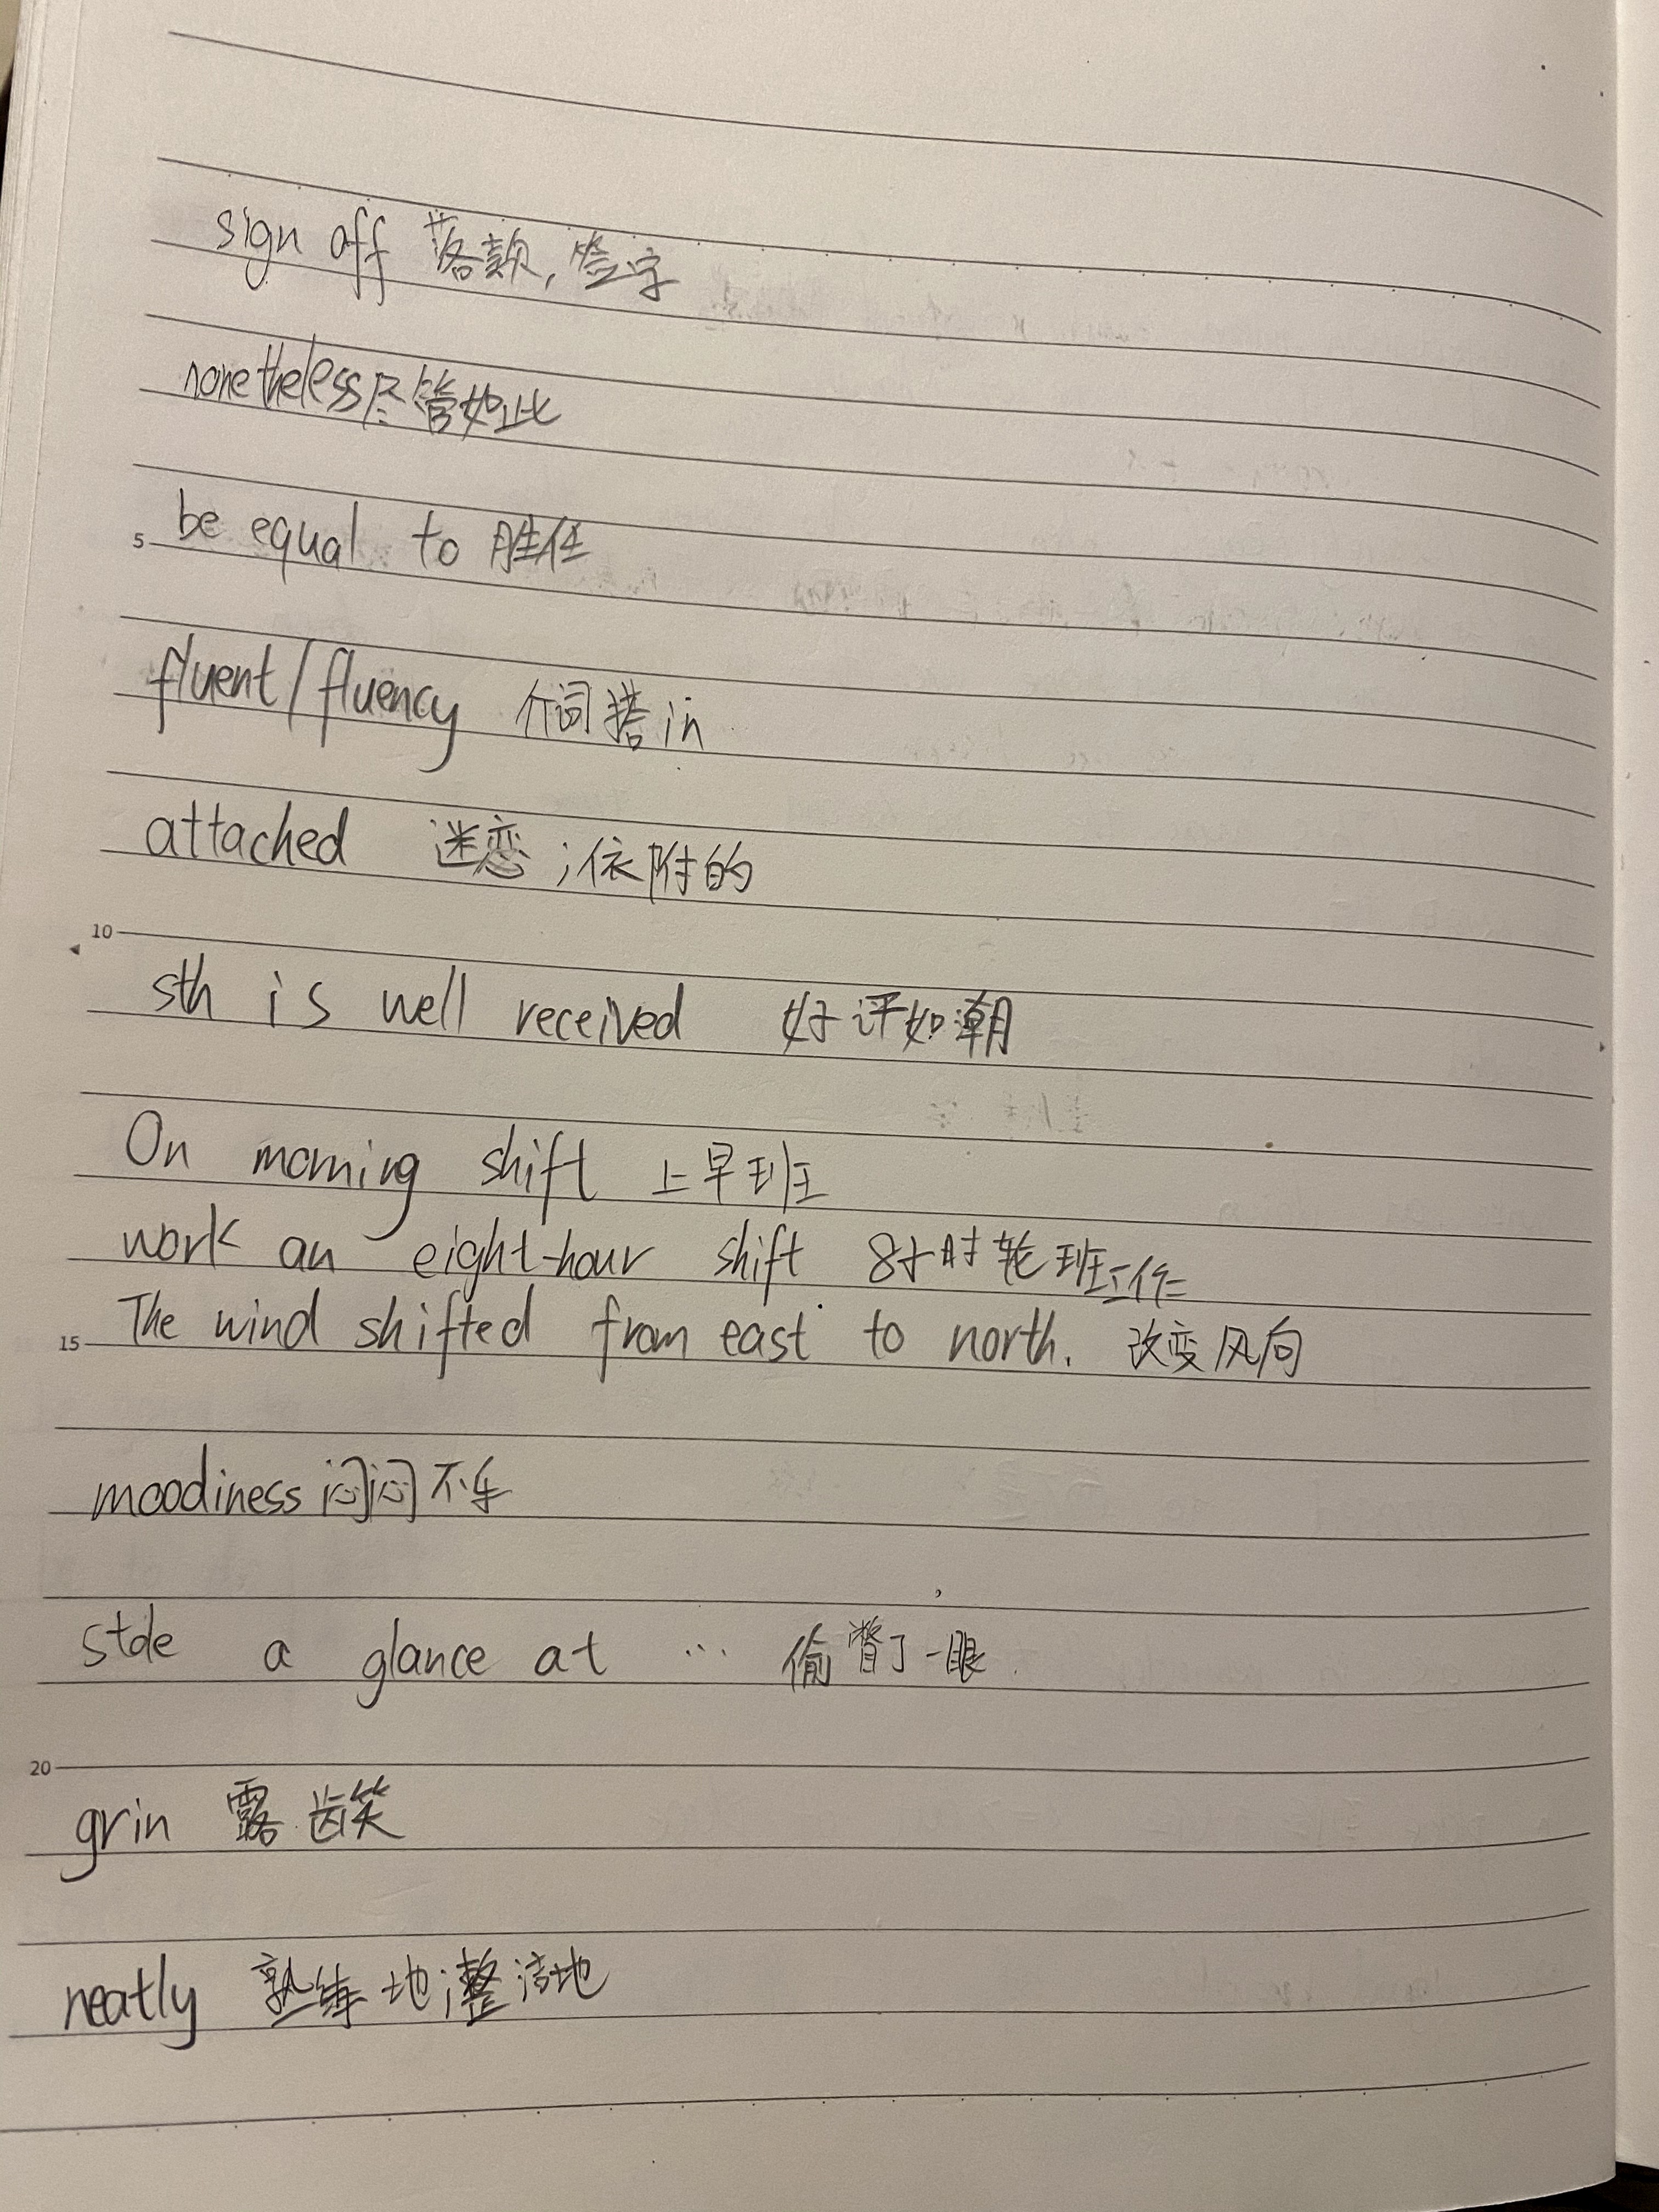 sign off 落款，签字
nonetheless 尽管如此
5 be equal to 胜任
fluent/fluency 介词搭in
attached 迷恋，依附的
10
sth is well received 好评如潮
On morning shift 上早班
work an eight-hour shift 8小时轮班工作
15 The wind shifted from east to north. 改变风向
moodiness 闷闷不乐
stole a glance at … 偷瞥了一眼
20
grin 露齿笑
neatly 整洁地